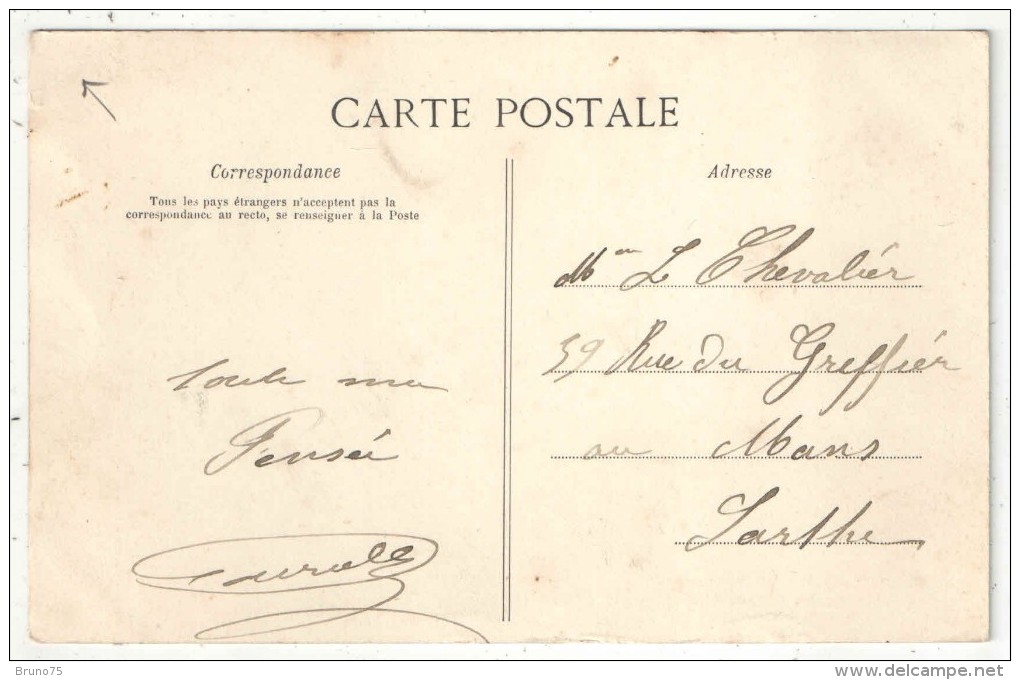 CARTE POSTALE
Correspondance
Tous les pays étrangers n'acceptent pas la
correspondance au recto, se renseigner à la Poste
Toute ma
Pensée
Adresse
L Chevalier
59 Rue du Greffier
au Mans
Sarthe
Bruno75
www.delcampe.net